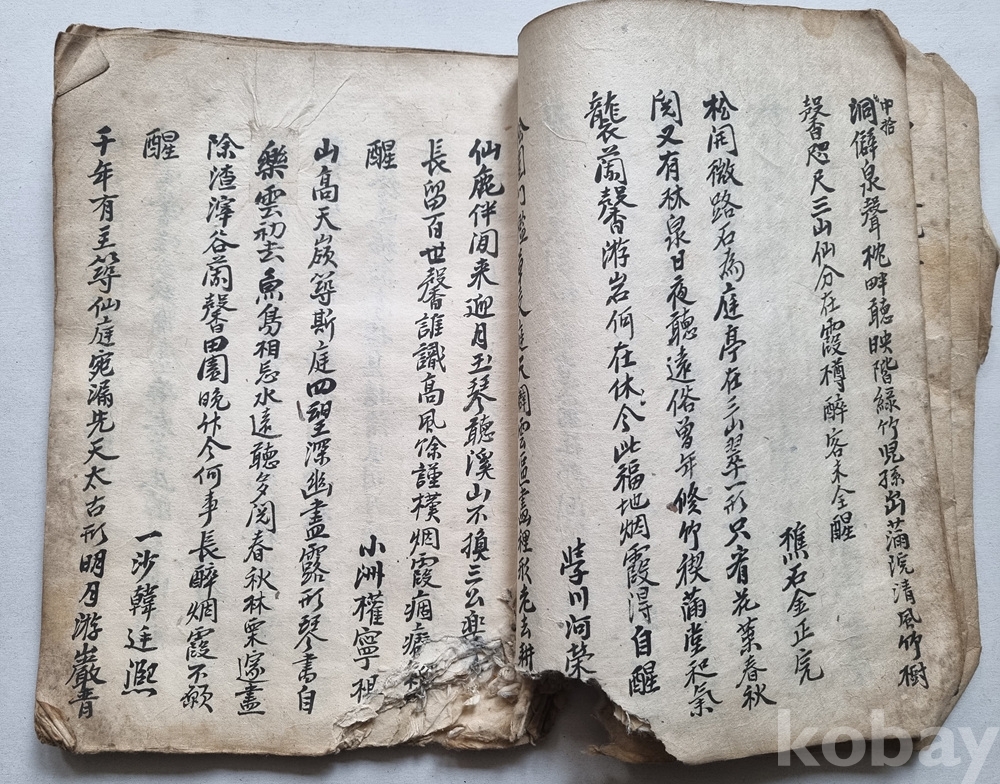 中拾
洞僻泉聲枕畔聽映階綠竹児孫出滿院清風竹樹
馨咫尺三山仙分在霞樽醉客未全醒
樵石金正完
松開微路石為庭亭在三山翠一形只看花葉春秋
閱又有林泉日夜聽遠俗曽年修竹禊滿堂和氣
襲蘭馨游岩何在休今此福地烟霞淂自醒
河榮
仙鹿伴閒来迎月玉琴聽溪山不換三公樂
長留百世馨誰識高風餘謹樸烟霞痼癖
醒
小洲權寧
山高天嶺篿斯庭四望深幽盡露形琴書自
樂雲初去魚鳥相忘水遠聽多閱春秋林栗邃盡
除渣滓谷蘭馨田園晚計今何事長醉烟霞不願
醒
一沙韓廷熈
千年有主篿仙庭宛漏先天太古形明月游巖青
kobay